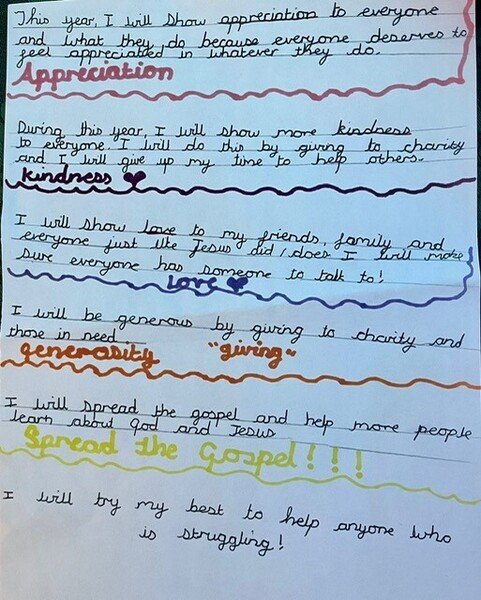 This year, I will show appreciation to everyone
and what they do because everyone deserves to
feel appreciated in whatever they do.
Appreciation
During this year, I will show more kindness
to everyone. I will do this by giving to charity
and I will give up my time to help others.
kindness
I will show love to my friends, family and
everyone just like Jesus did/does I will make
sure everyone has someone to talk to!
Love
I will be generous by giving to charity and
those in need
generosity "giving"
I will spread the gospel and help more people
learn about God and Jesus
Spread the Gospel!!!
I will try my best to help anyone who
is struggling!